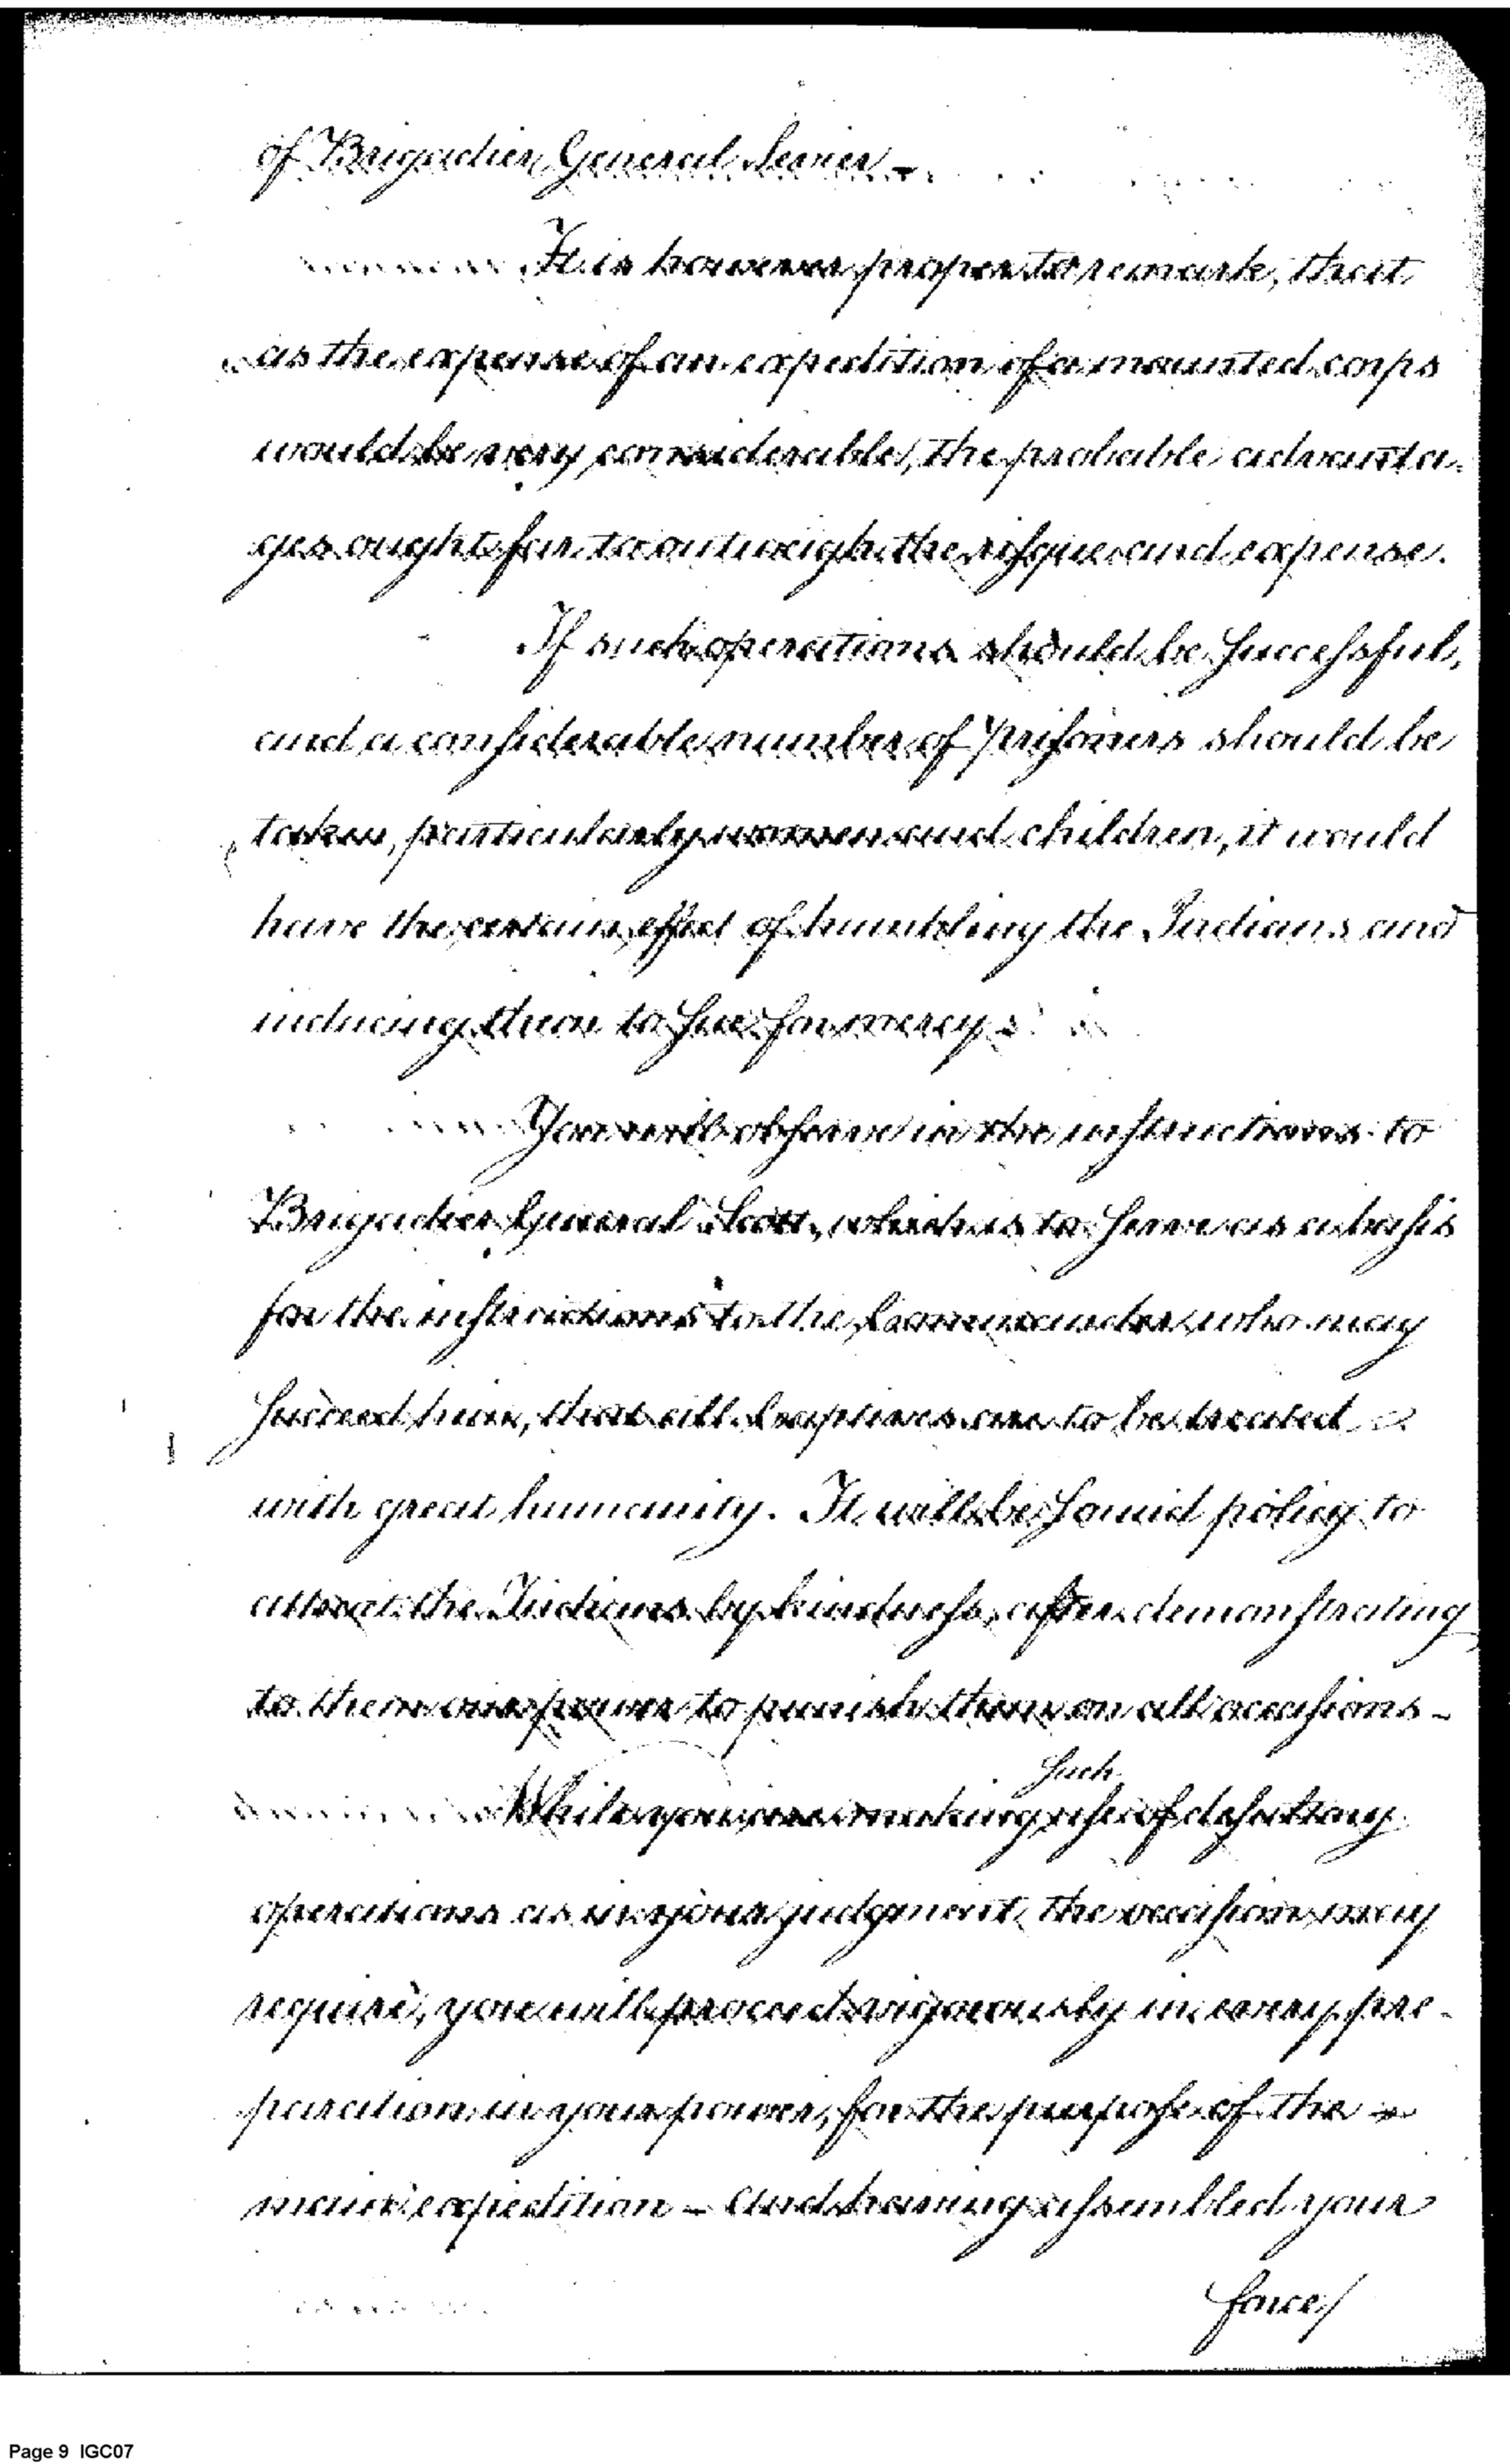 of Brigadier General Sevier –
It is however proper to remark, that
as the expense of an expedition of a mounted corps
would be very considerable, the probable advanta-
ges ought far to outweigh the risque and expense.
If such operations should be successful,
and a considerable number of prisoners should be
taken, particularly women and children, it would
have the certain effect of humbling the Indians and
inducing them to sue for mercy.
You will observe in the instructions to
Brigadier General Scott, which is to serve as a basis
for the instructions to the Commander, who may
succeed him, that all Captives are to be treated
with great humanity. It will be sound policy to
attract the Indians by kindness, after demonstrating
to them our power to punish them on all occasions –
such
While you are making use of desultory
operations as in your judgment the occasion may
require, you will proceed vigorously in every pre-
paration in your power, for the purpose of the
main expedition – And having assembled your
force/
Page 9 IGC07